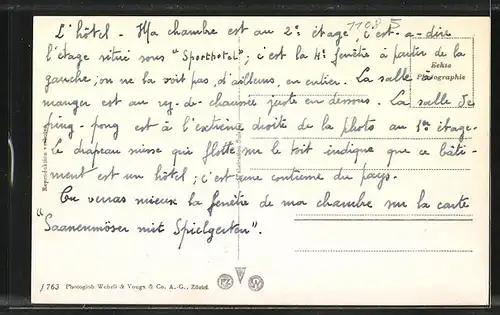 11085
L'hôtel - Ma chambre est au 2e étage, c'est-a-dire
l'étage situé sous "Sporthotel"; c'est la 4e fenêtre à partir de la
gauche; on ne la voit pas, d'ailleurs, en entier. La salle à
manger est au rez-de-chaussée juste en dessous. La salle de
ping-pong est à l'extrême droite de la photo au 1er étage.
le drapeau suisse qui flotte sur le toit indique que ce bâti-
ment est un hôtel; c'est une coutume du pays.
Tu verras mieux la fenêtre de ma chambre sur la carte
"Saanenmöser mit Spielgerten".
Echte
Photographie
Reproduktion
J 763 Photoglob-Wehrli & Vouga & Co. A.-G., Zürich
PZ
W